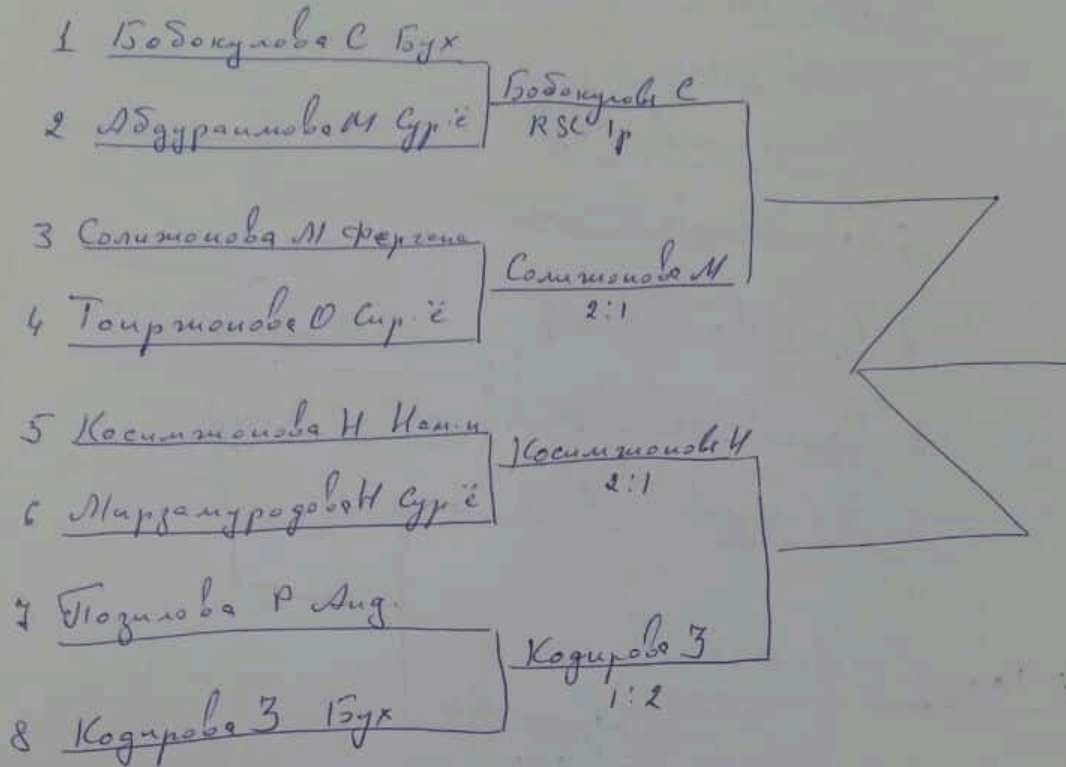 1 Бобокулова С Бух
2 Абдураимова М Сур-ё
Бобокулова С
RSC 1р
3 Солижонова М Фергона
4 Тоиржонова О Сир-ё
Солижонова М
2:1
5 Косимжонова Н Нам-н
6 Мирзамуродова Н Сур-ё
Косимжонова Н
2:1
7 Позилова Р Анд.
8 Кодирова З Бух
Кодирова З
1:2